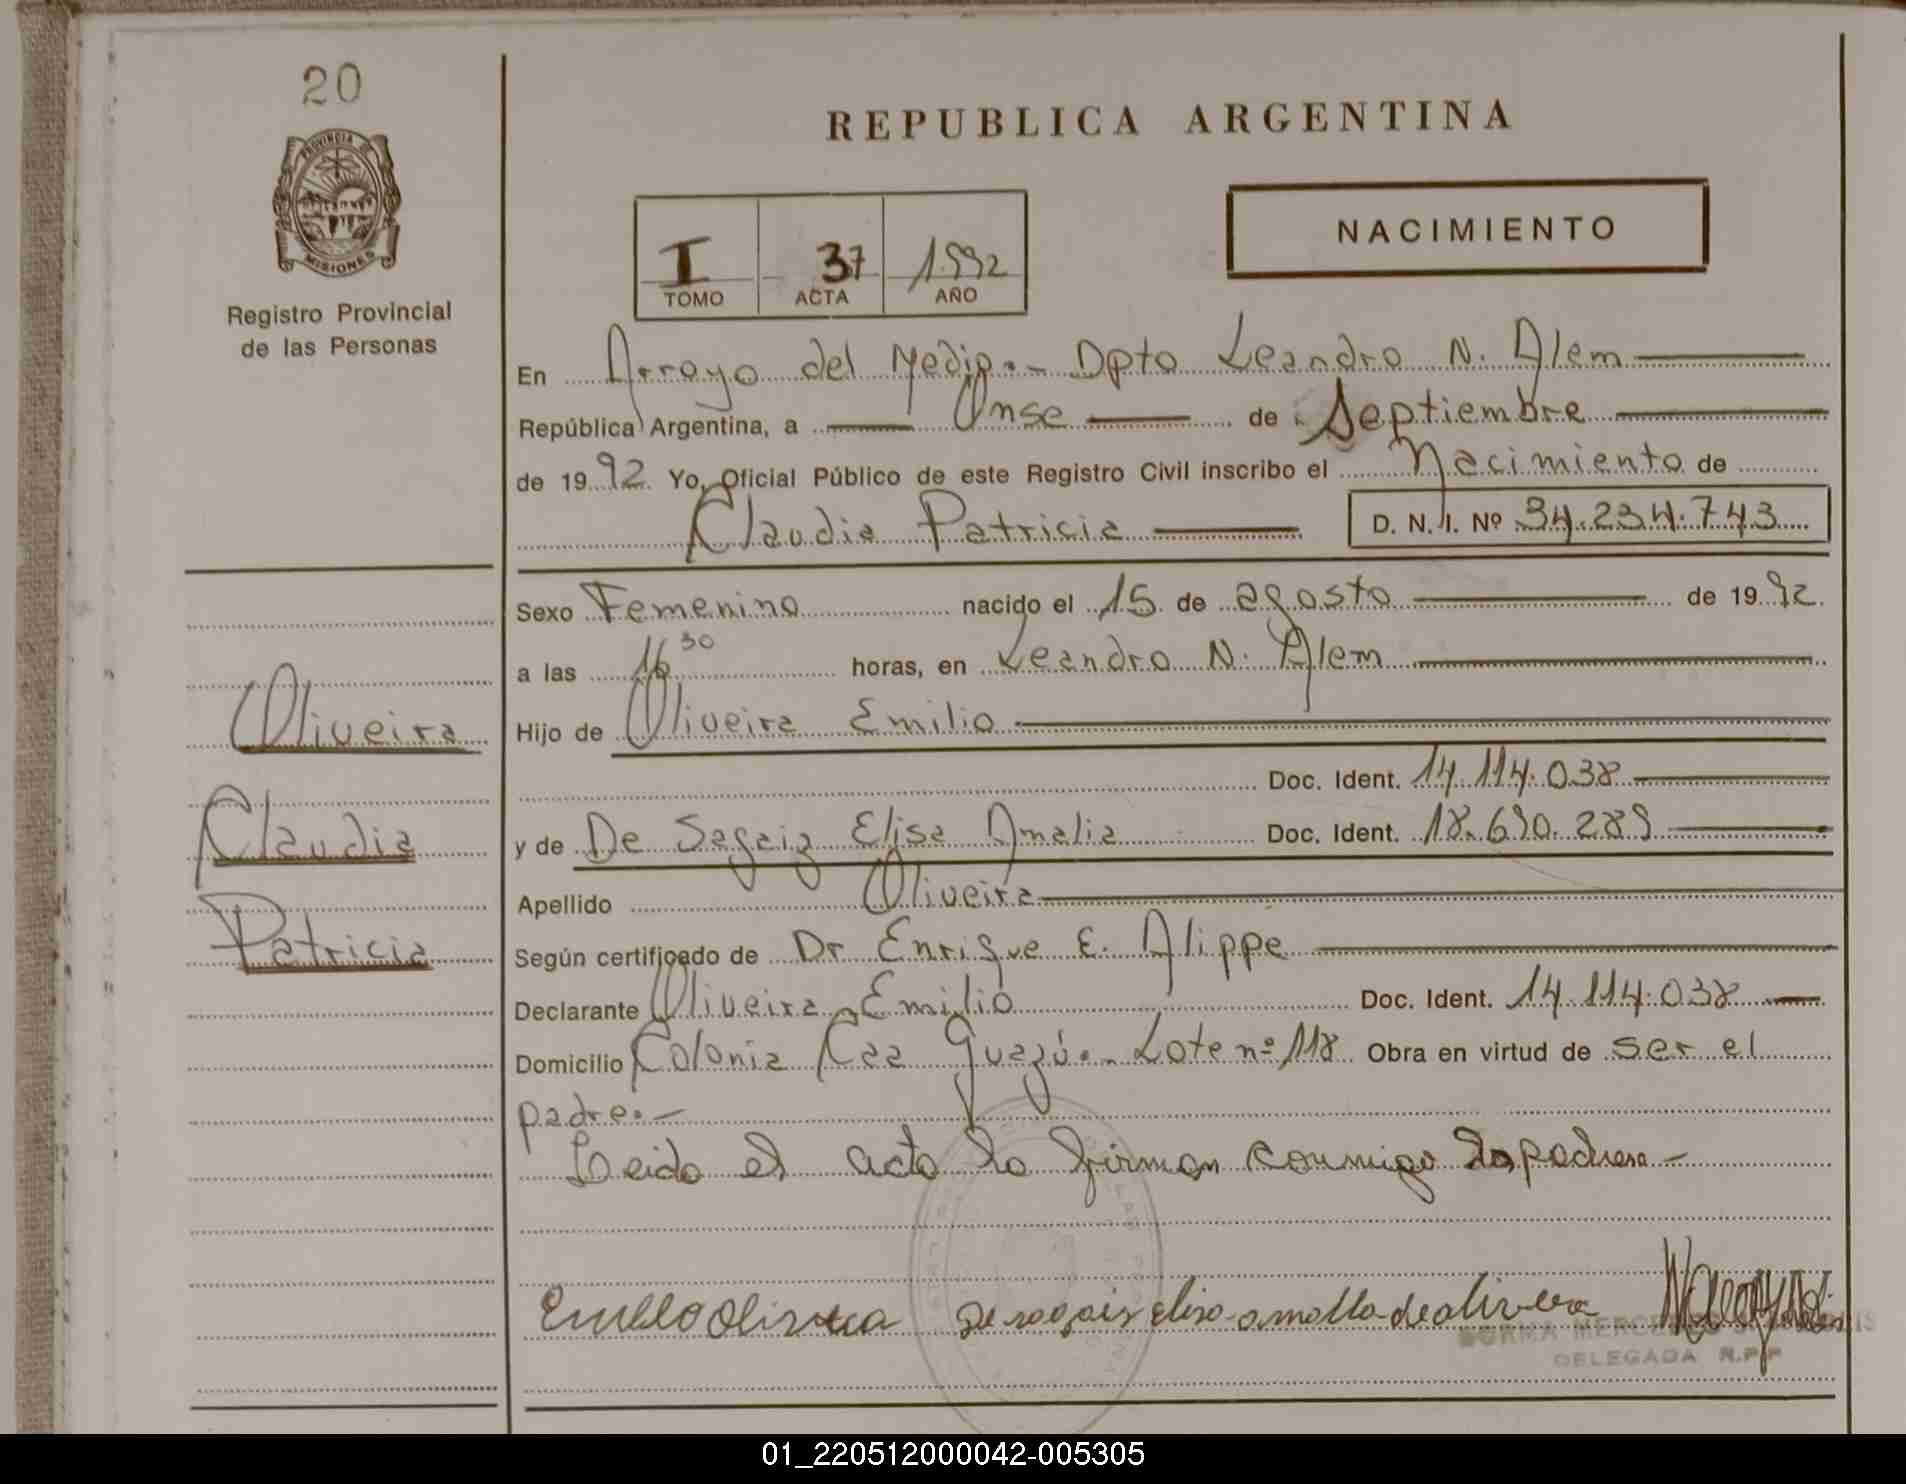 20
PROVINCIA DE
MISIONES
Registro Provincial
de las Personas
REPUBLICA ARGENTINA
I 37 1992
TOMO ACTA AÑO
NACIMIENTO
En Arroyo del Medio.- Dpto Leandro N. Alem
República Argentina, a Onse de Septiembre
de 1992. Yo, Oficial Público de este Registro Civil inscribo el Nacimiento de
Claudia Patricia D. N. I. Nº 34.234.743
Sexo Femenino nacido el 15 de agosto de 1992.
a las 16 30 horas, en Leandro N. Alem
Hijo de Oliveira Emilio
Doc. Ident. 14.114.038
y de De Segaiz Elisa Amalia Doc. Ident. 18.690.289
Apellido Oliveira
Según certificado de Dr Enrique E. Alippe
Declarante Oliveira Emilio Doc. Ident. 14.114.038
Domicilio Colonia Caa Guazú.- Lote nº 118 Obra en virtud de ser el
padre.-
Leido el acta la firman conmigo
Oliveira
Claudia
Patricia
Emilio Oliveira elisa amalia de olivera
NORMA
DELEGADA R.P.P
01_220512000042-005305